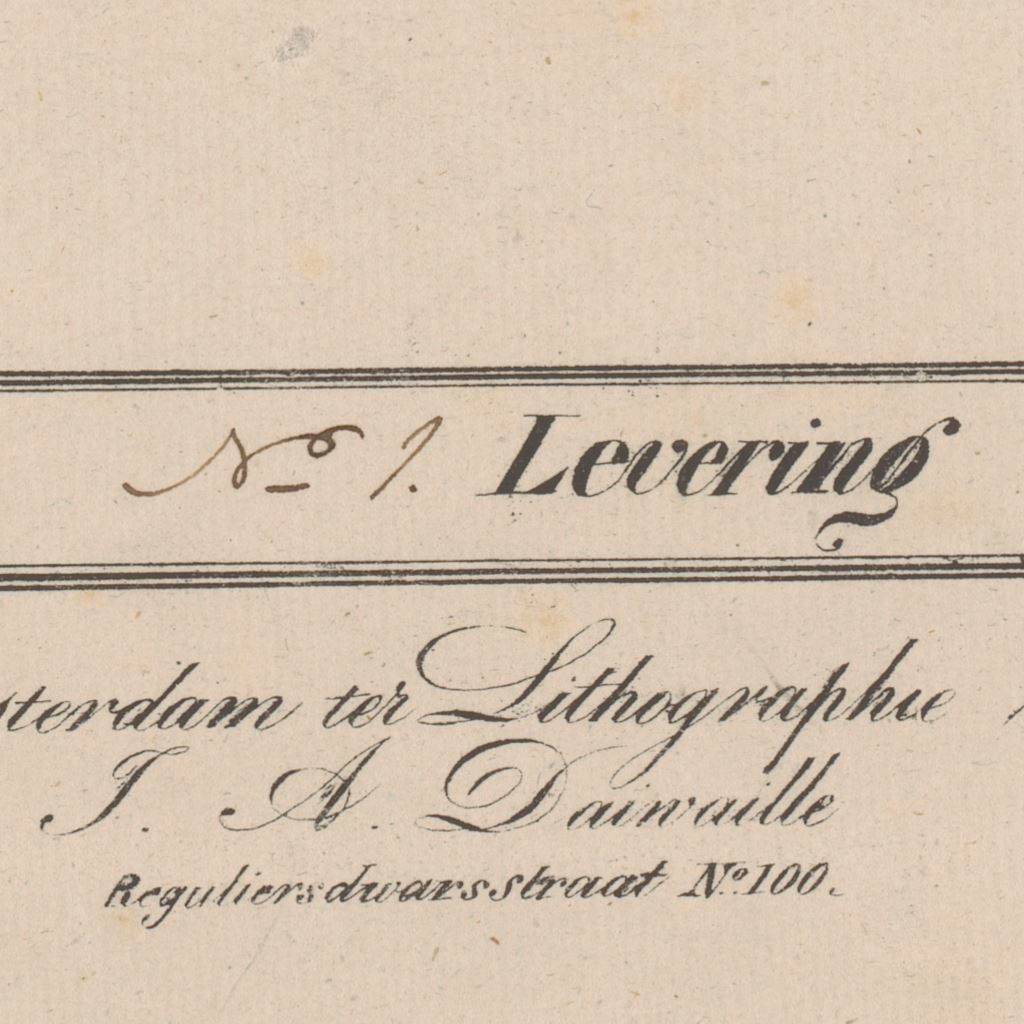 No 1. Levering
sterdam ter Lithographie
J. A. Daiwaille
Reguliersdwarsstraat No. 100.